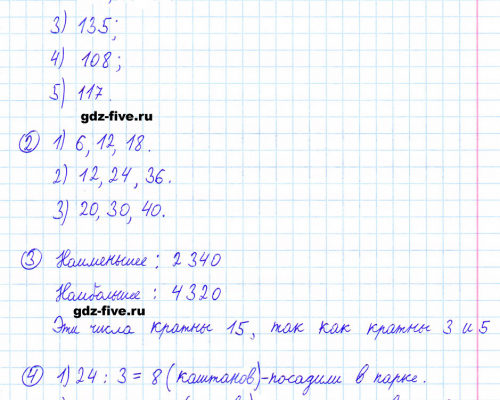 3) 135;
4) 108;
5) 117.
gdz-five.ru
② 1) 6, 12, 18.
2) 12, 24, 36.
3) 20, 30, 40.
③ Наименьшее: 2 340
Наибольшее: 4 320
gdz-five.ru
Эти числа кратны 15, так как кратны 3 и 5
④ 1) 24 : 3 = 8 (каштанов) - посадили в парке.